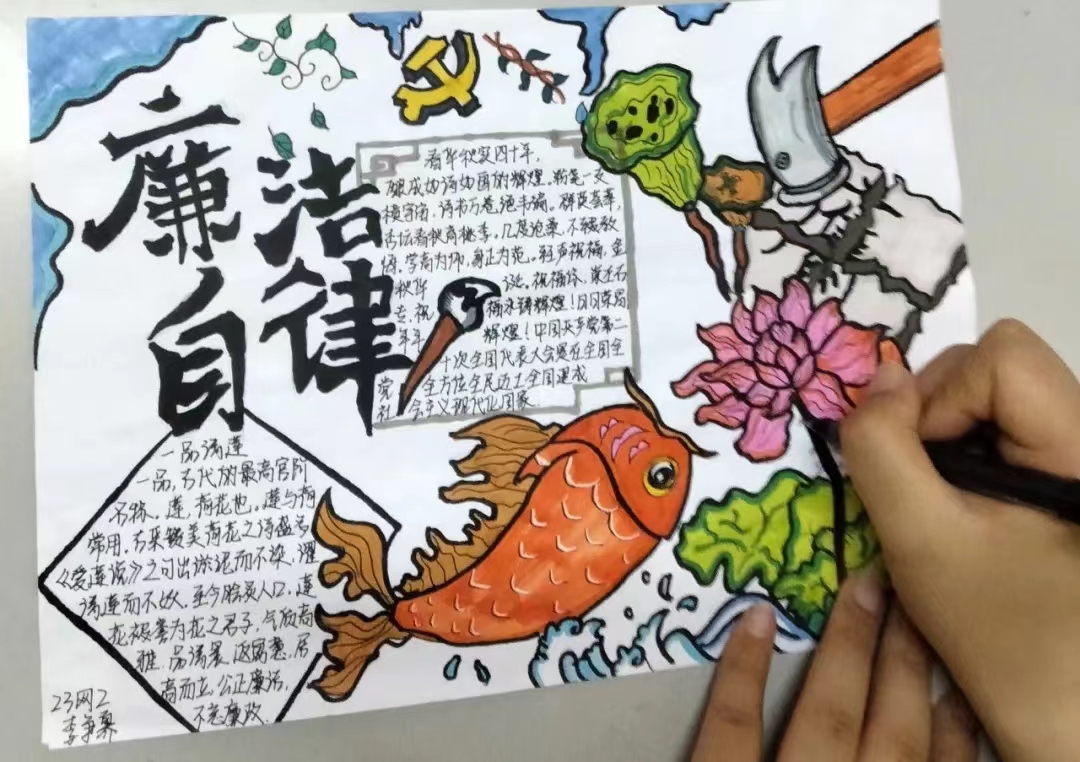 廉洁
自律
看华秋实四十年,
酿成功诗如画的辉煌。粉笔一支
横宇宙,诗书万卷绝韦编。群英荟萃,
杏坛春秋育桃李。几度沧桑,不辍教
悟。学高为师,身正为范。轻声祝福,金
秋华诞。祝福你
福永铸辉煌!日日荣昌
年年辉煌!中国共产党第二
十次全国代表大会是在全国全
党全方位全民迈上全国建成
社会主义现代化国家
一品清莲
一品,古代的最高官阶
名称。莲,荷花也。莲与荷
常用,古来赞美荷花之诗盛多
《爱莲说》之句出淤泥而不染,濯
清莲而不妖,至今脍炙人口,莲
花被誉为花之君子,气质高
雅,品清寰,
高而立,公正廉洁,
不忘廉政.
23网2
李争